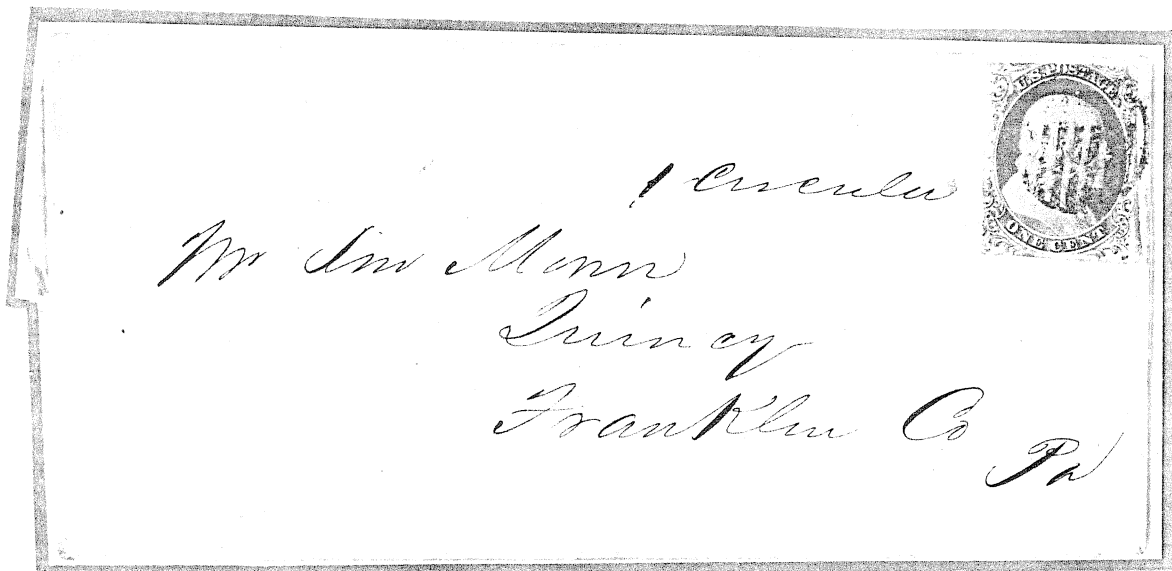 U.S. POSTAGE
ONE CENT
1 Circular
Mr Jno Monn
Quincy
Franklin Co
Pa